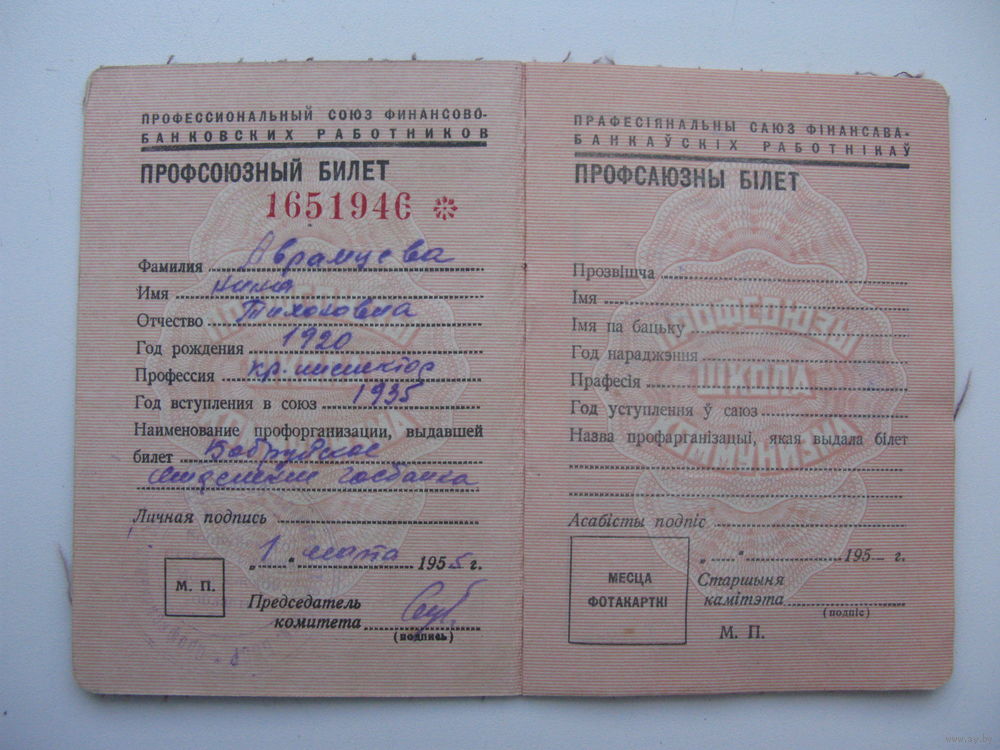 ПРОФЕССИОНАЛЬНЫЙ СОЮЗ ФИНАНСОВО-
БАНКОВСКИХ РАБОТНИКОВ
ПРОФСОЮЗНЫЙ БИЛЕТ
1651946
Фамилия Аврамцева
Имя Нина
Отчество Тихоновна
Год рождения 1920
Профессия кр. инспектор
Год вступления в союз 1935
Наименование профорганизации, выдавшей
билет Бобруйское
отделение Госбанка
Личная подпись
„ 1 “ марта 1955 г.
М. П.
Председатель
комитета
(подпись)
ПРАФЕСІЯНАЛЬНЫ САЮЗ ФІНАНСАВА-
БАНКАЎСКІХ РАБОТНІКАЎ
ПРОФСАЮЗНЫ БІЛЕТ
Прозвішча
Імя
Імя па бацьку
Год нараджэння
Прафесія
Год уступлення ў саюз
Назва профарганізацыі, якая выдала білет
ПРОФСОЮЗЫ
ШКОЛА
КОММУНИЗМА
Асабісты подпіс
„ “ 195 г.
МЕСЦА
ФОТАКАРТКІ
Старшыня
камітэта
(подпіс)
М. П.
www.ay.by